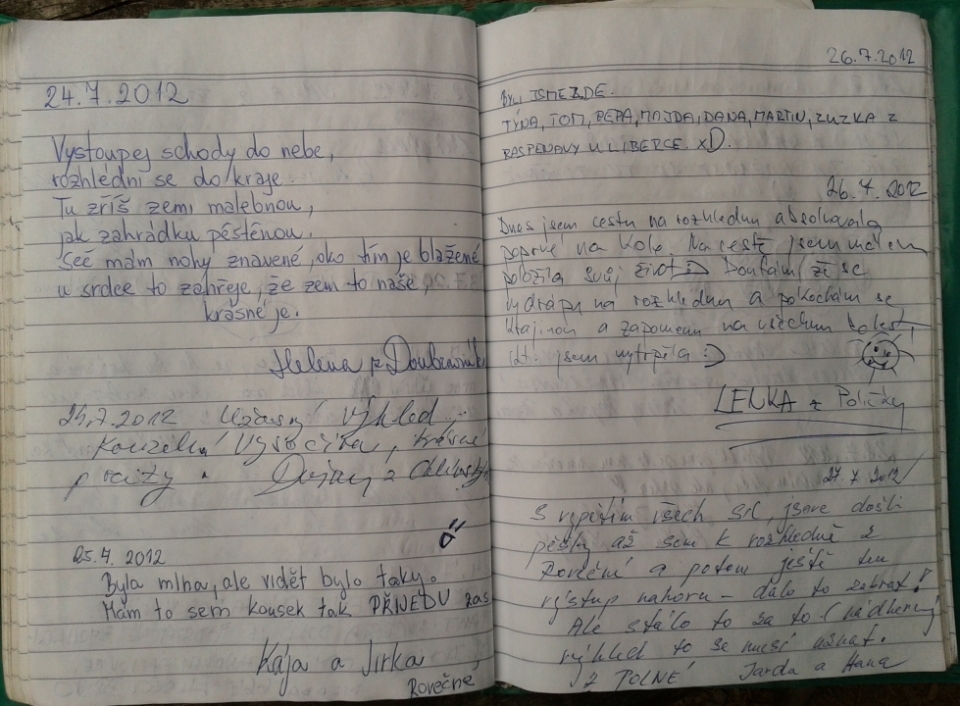 24.7.2012
Vystoupej schody do nebe,
rozhlédni se do kraje.
Tu zříš zemi malebnou,
jak zahrádku pěstěnou.
Seč mám nohy znavené, oko tím je blažené
u srdce to zahřeje, že zem to naše,
krásné je.
Helena z
24.7.2012 Úžasný výhled
Kouzelná Vysočina, krásné
pocity.
25.7.2012
Byla mlha, ale vidět bylo taky.
Mám to sem kousek tak PŘIJEDU zas
Kája a Jirka
Rovečné
26.7.2012
BYLI JSME ZDE.
TÝNA, TOM, PEPA, MAJDA, DANA, MARTIN, ZUZKA Z
RASPENAVY U LIBERCE. XD.
26.7.2012
Dnes jsem cestu na rozhlednu absolvovala
poprvé na kole. Na cestě jsem málem
položila svůj život :D Doufám, že se
vydrápu na rozhlednu a pokochám se
krajinou a zapomenu na všechnu bolest,
kt. jsem vytrpěla :D
LENKA z Poličky
27.7.2012
S vypětím všech sil, jsme došli
pěšky až sem k rozhledně z
Rovečné a potom ještě ten
výstup nahoru - dalo to zabrat!
Ale stálo to za to (nádherný
výhled to se musí uznat.
Z POLNÉ Jarda a Hana